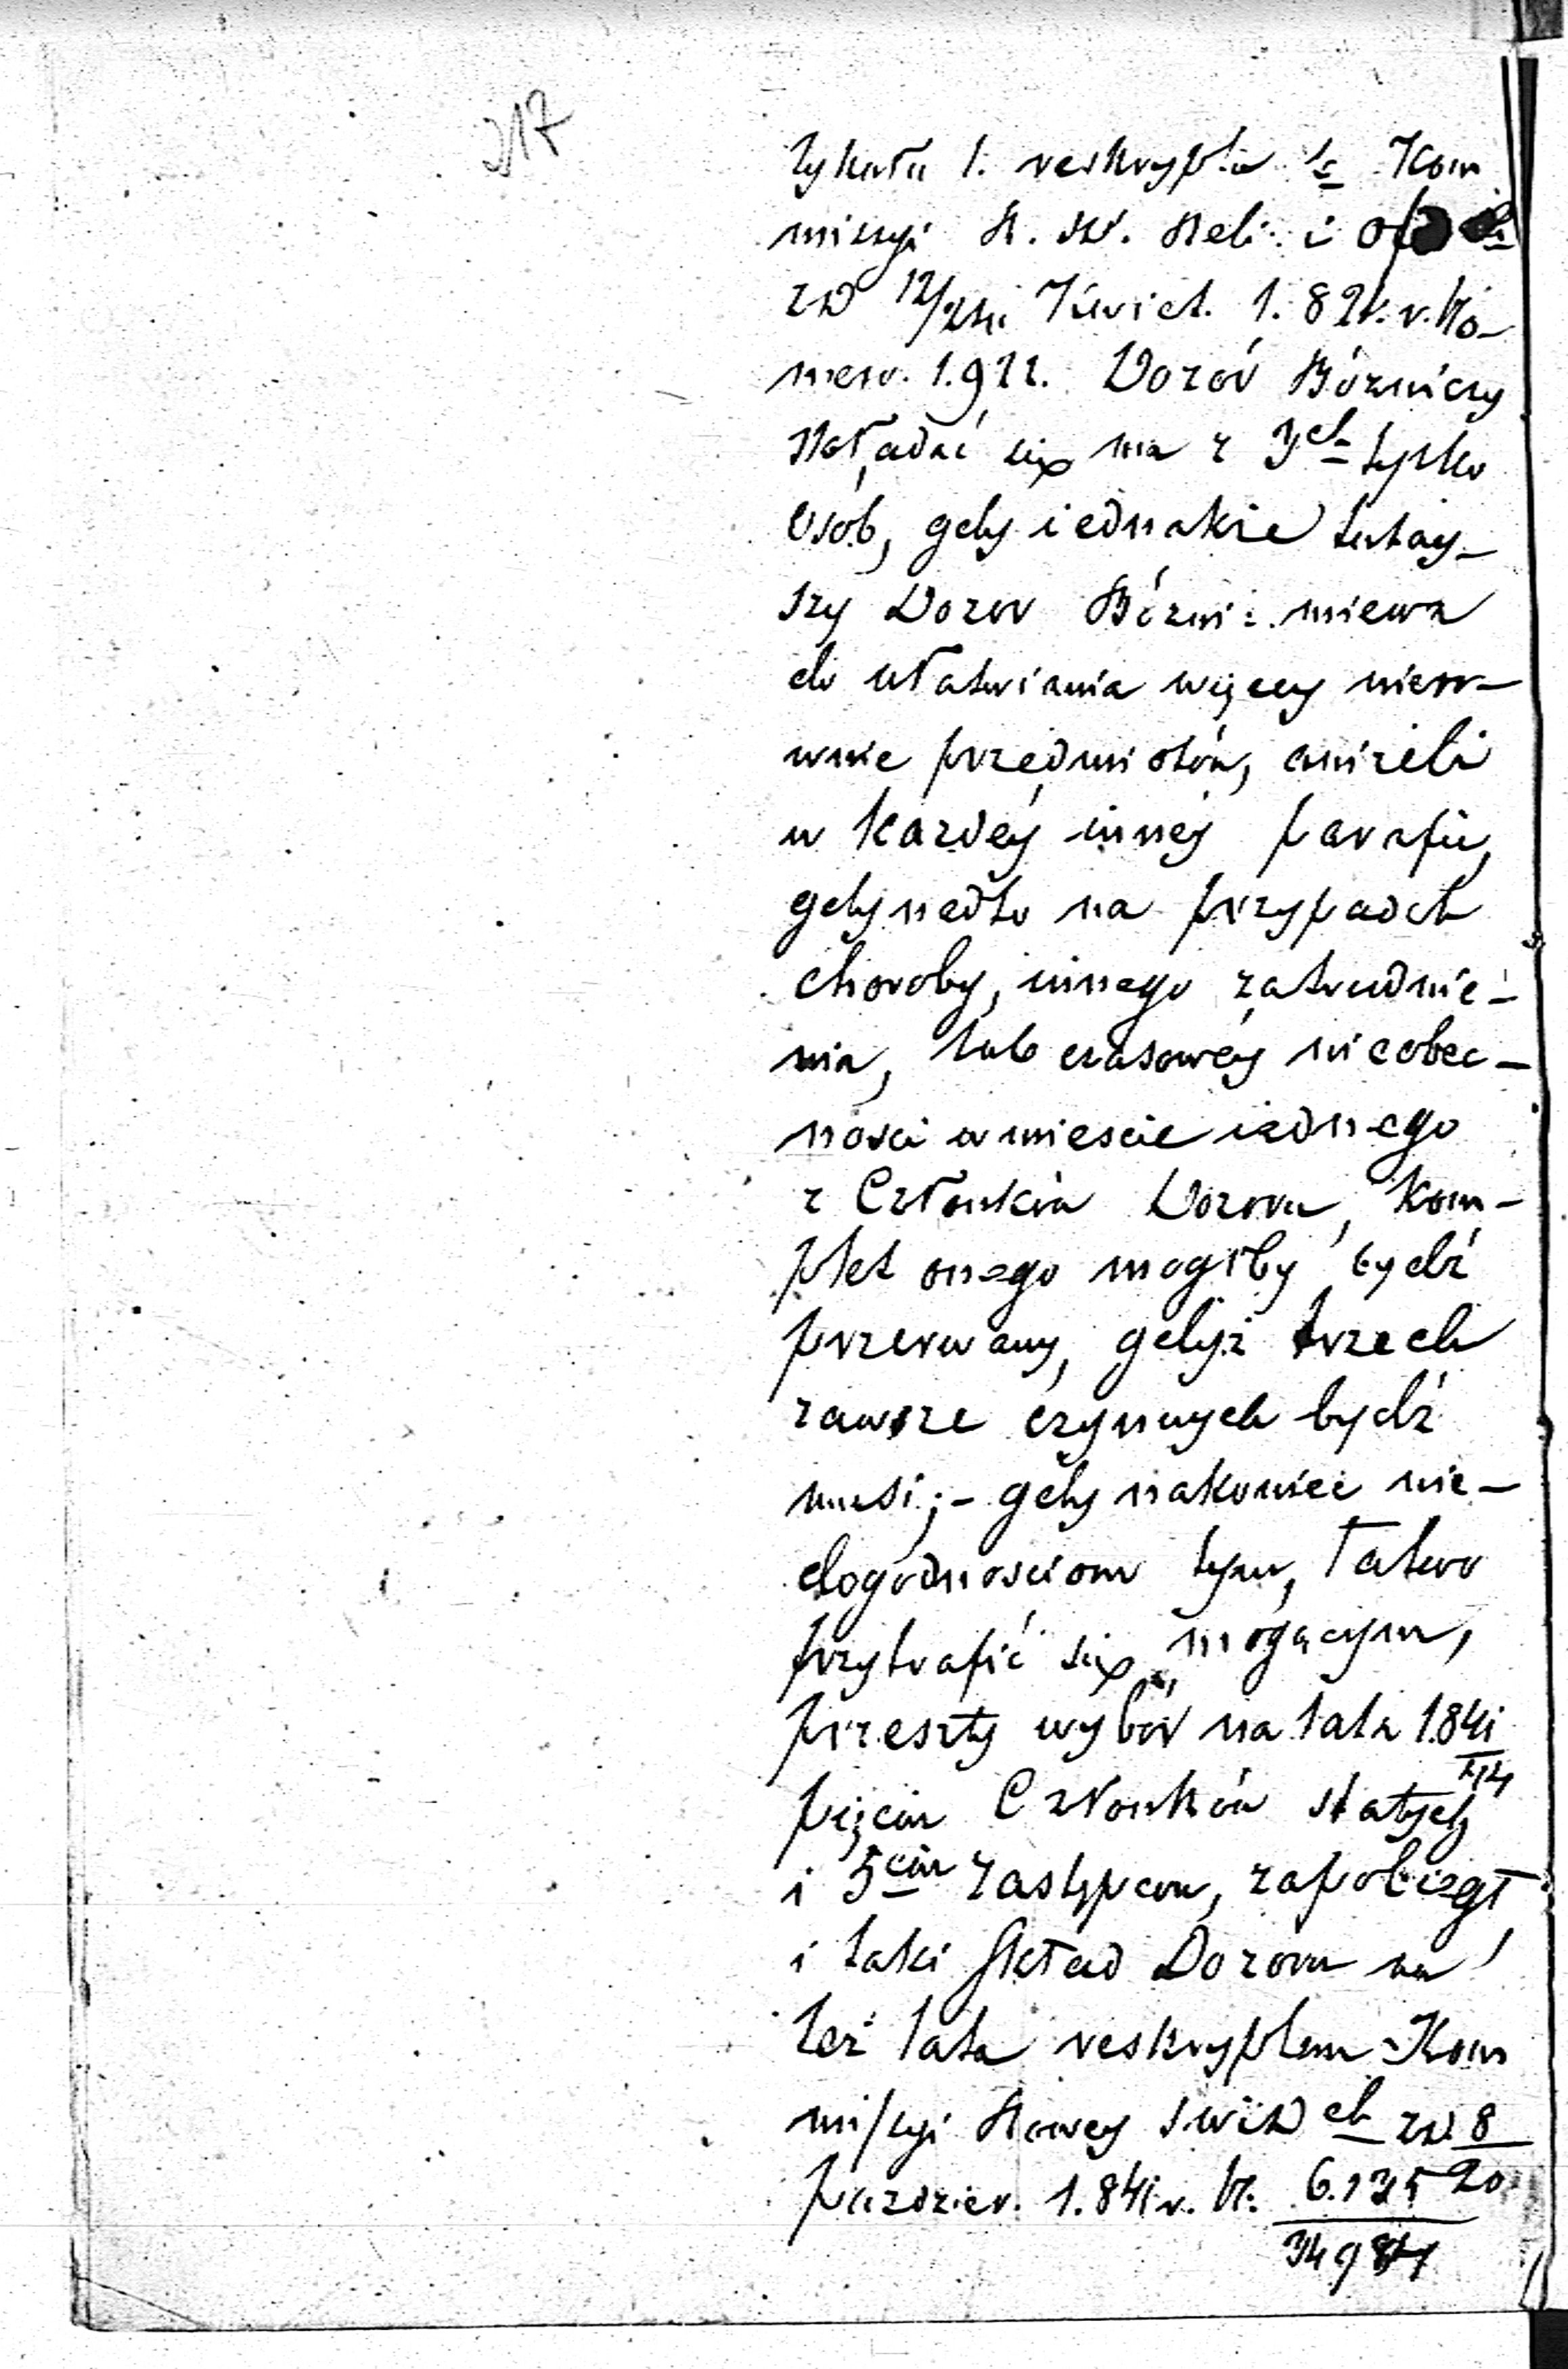 217
tykułu 1. reskryptu
missyi R. W. Reli: i
zd 12/24 Kwiet. 1.82 r. No-
mero. 1.922. Dozór Bózniczy
składać się ma z 3ch tylko
Osób, gdy iednakże tutay-
szy Dozor Bózni: miewa
do ułatwiania więcey nieró-
wnie przedmiotów, aniżeli
w każdey innéy parafii,
gdy nadto na przypadek
choroby, innego zatrudnie-
nia, lub czasowéy nieobec-
nosci w miescie iednego
z Członków Dozoru, Kom-
plet onego mógłby bydź
przerwany, gdyż trzech
zawsze czynnych bydź
musi; - gdy nakoniec nie-
dogodnosciom tym, łatwo
przytrafić się mogącym,
przeszły wybór na lata 1.841
pięciu Członków stałych
i 5ciu Zastępcow, zapobiegł,
i taki Skład Dozoru na
też lata reskryptem Kom
missyi Rowey Swiech zd 8
pazdzier. 1.841 r. N. 6.135 20
34984